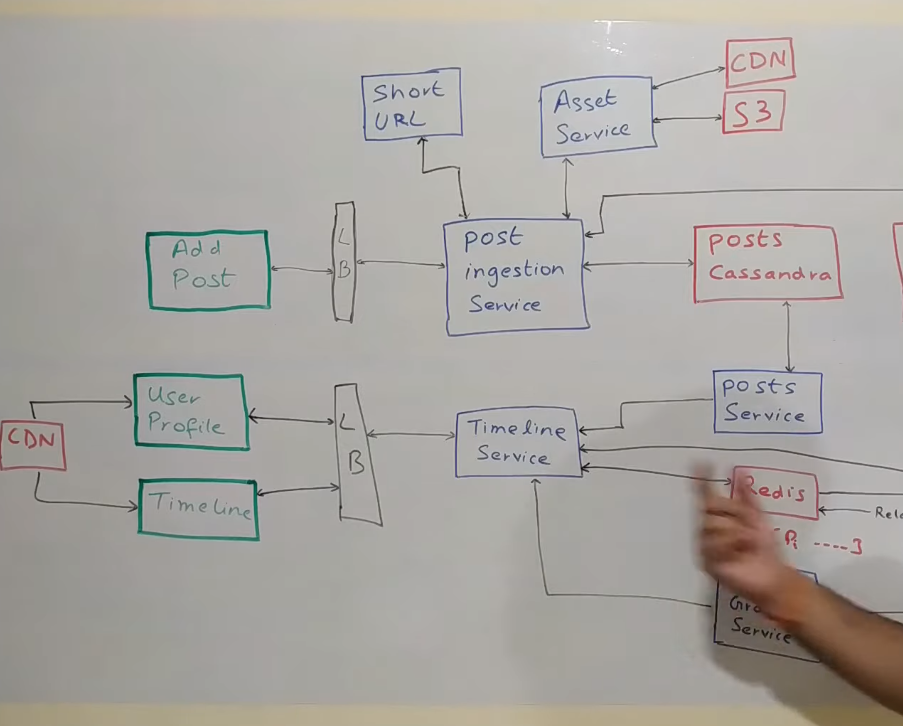 Short
URL
Asset
Service
CDN
S3
Add
Post
L
B
post
ingestion
Service
posts
Cassandra
User
Profile
CDN
Timeline
L
B
Timeline
Service
posts
Service
Redis
Service